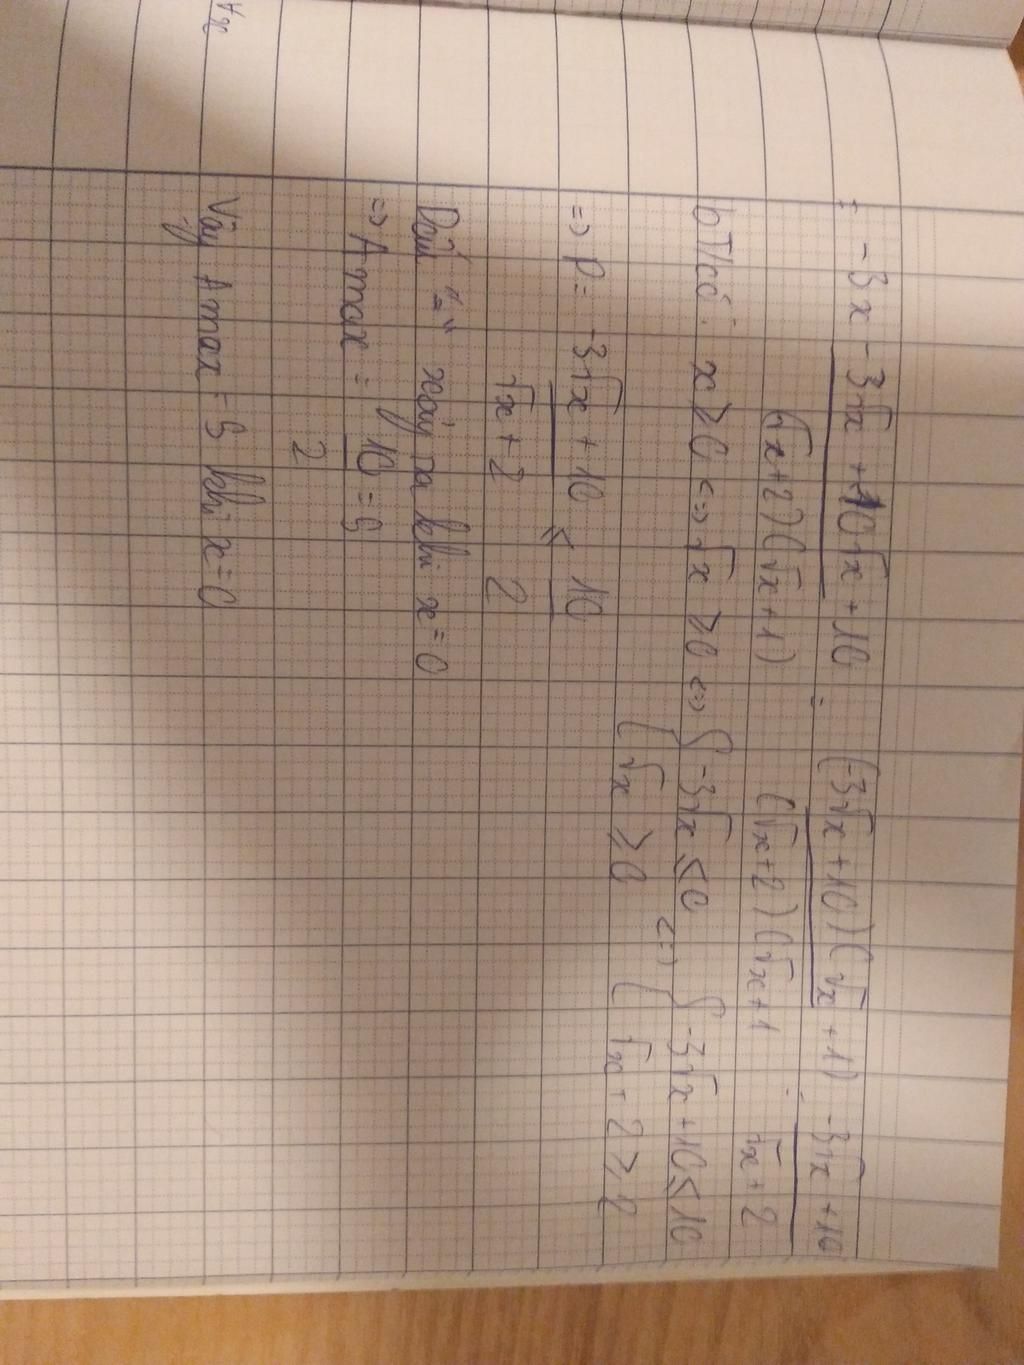 = -3x - 3√x + 10√x + 10 / (√x+2)(√x+1) = (-3√x+10)(√x+1) / (√x+2)(√x+1 = -3√x+10 / √x+2
b) T/có: x ≥ 0 <=> √x ≥ 0 <=> { -3√x ≤ 0 <=> { -3√x + 10 ≤ 10
{ √x ≥ 0 { √x + 2 ≥ 2
=> P = -3√x + 10 / √x + 2 ≤ 10 / 2
Dấu "=" xảy ra khi x = 0
=> A max = 10 / 2 = 5
Vậy A max = 5 khi x = 0